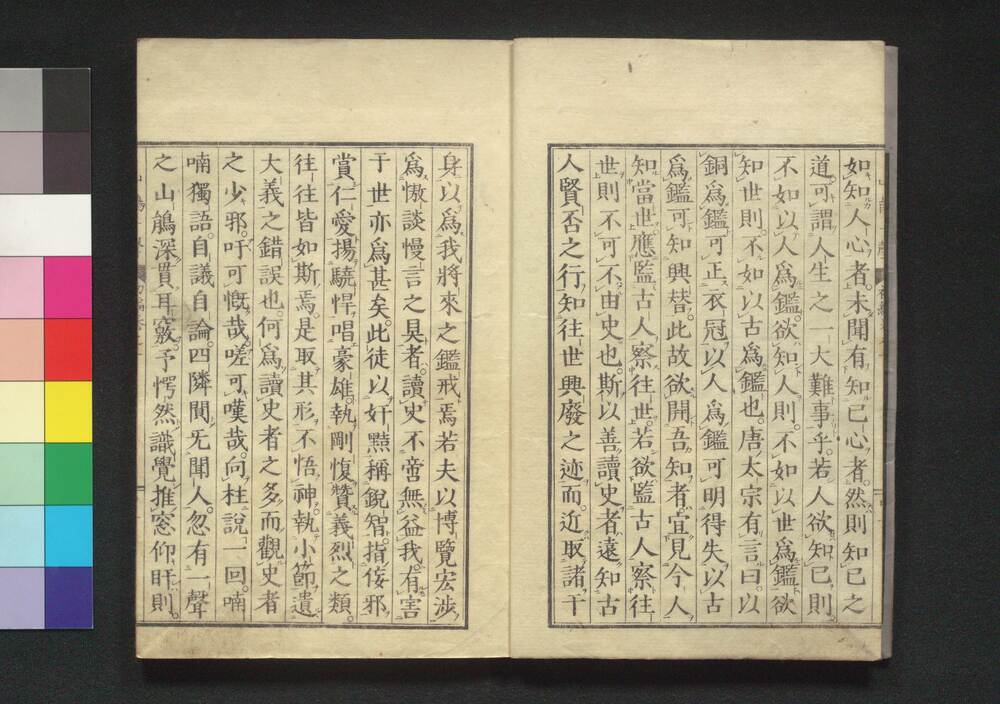 如知人心者。未聞有知已心者。然則知已之
道。可謂人生之一大難事乎。若人欲知已、則
不如以人爲鑑。欲知人則。不如以世爲鑑。欲
知世則。不如以古爲鑑也。唐太宗有言曰。以
銅爲鑑。可正衣冠。以人爲鑑。可明得失。以古
爲鑑。可知興替。此故欲開吾知者。宜見今人
知當世。應監古人察往世。若欲監古人察往
世則。不可不由史也。斯以善讀史者。遠知古
人賢否之行。知往世興廢之迹。而近取諸干
身以爲我將來之鑑戒焉。若夫以博覽宏涉
爲慠談慢言之具者。讀史不啻無益我。有害
于世亦爲甚矣。此徒以奸黠稱銳智。指侫邪
賞仁愛。揚驍悍。唱豪雄。執剛愎贊義烈之類
往往皆如斯焉。是取其形。不悟神。執小節遺
大義之錯誤也。何爲讀史者之多。而觀史者
之少邪。吁可慨哉。嗟可嘆哉。向柱說一回。喃
喃獨語。自議自論。四隣閴无聞人。忽有一聲
之山鵑深貫耳竅。予愕然識覺推窓仰盱則。